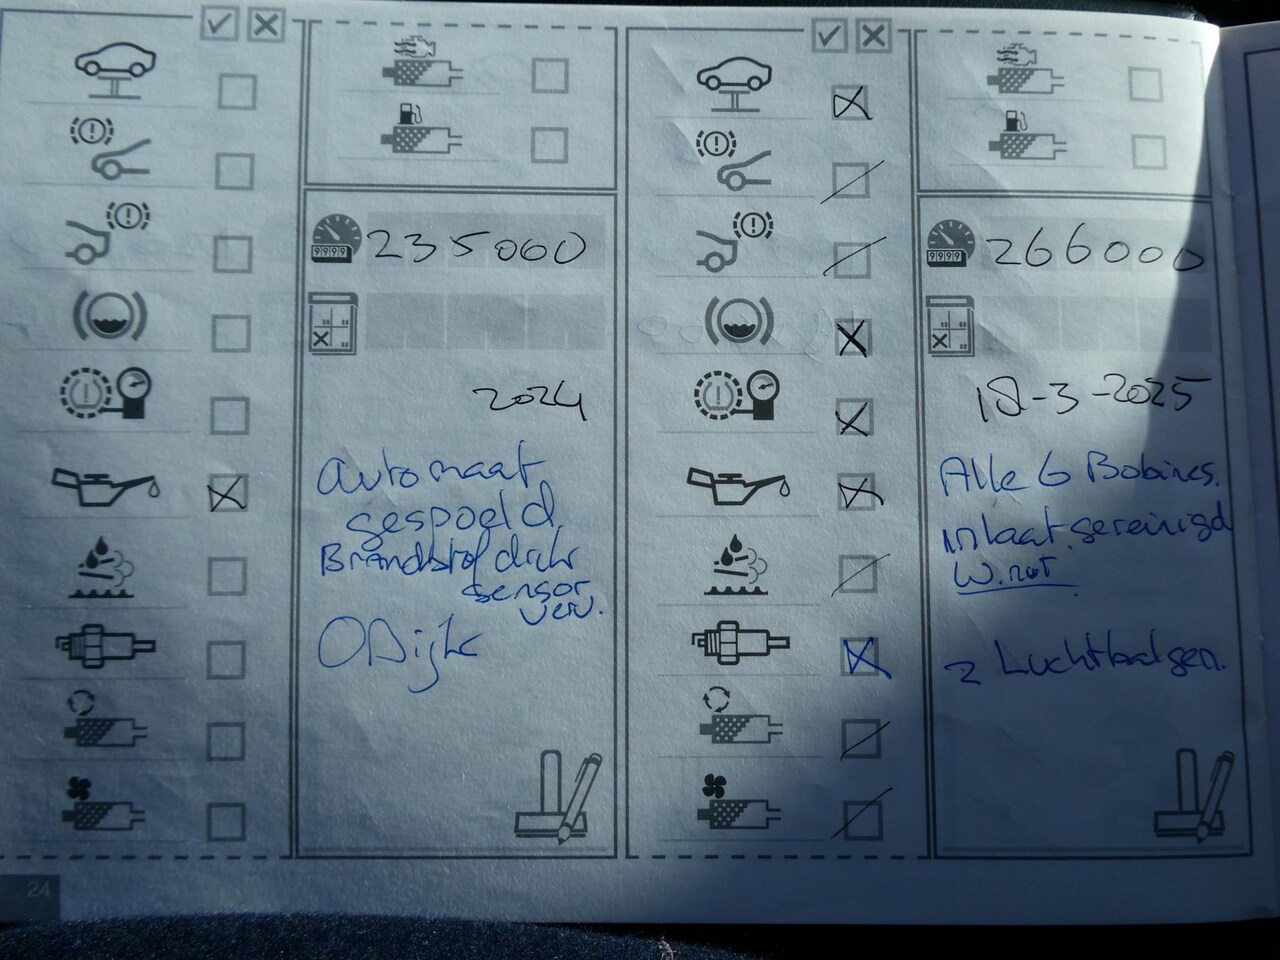 235000
2024
Automaat
gespoeld
Brandstof druk
sensor
verv.
266000
18-3-2025
Alle 6 Bobines.
inlaat gereinigd
2 Luchtbalgen.
24